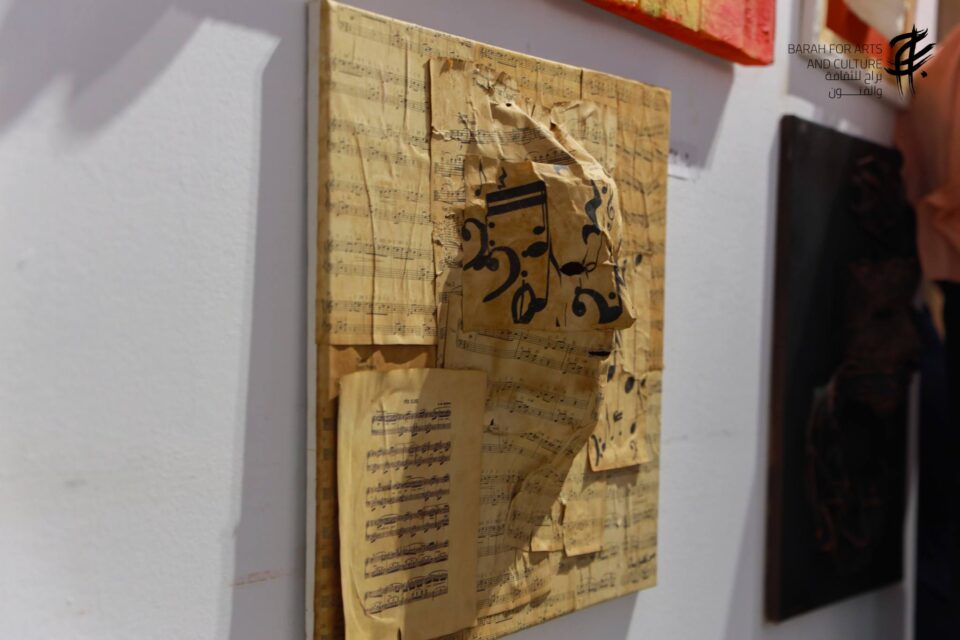 BARAH FOR ARTS
AND CULTURE
براح للثقافة
والفنـــون